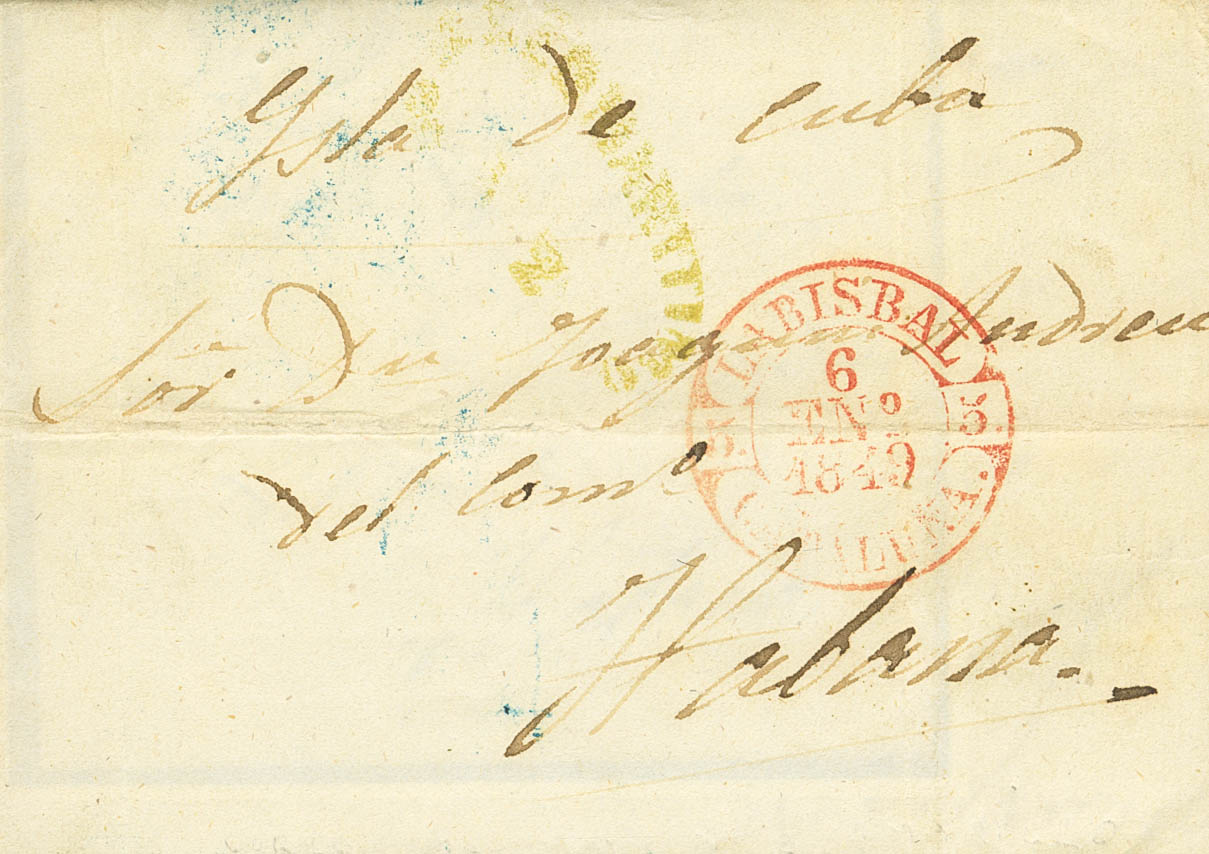 Ysla de cuba
Sor. Dn Joaquin Andreu
del Comº
Habana.
LABISBAL
6
ENº
1849
5. 5.
CATALUÑA.